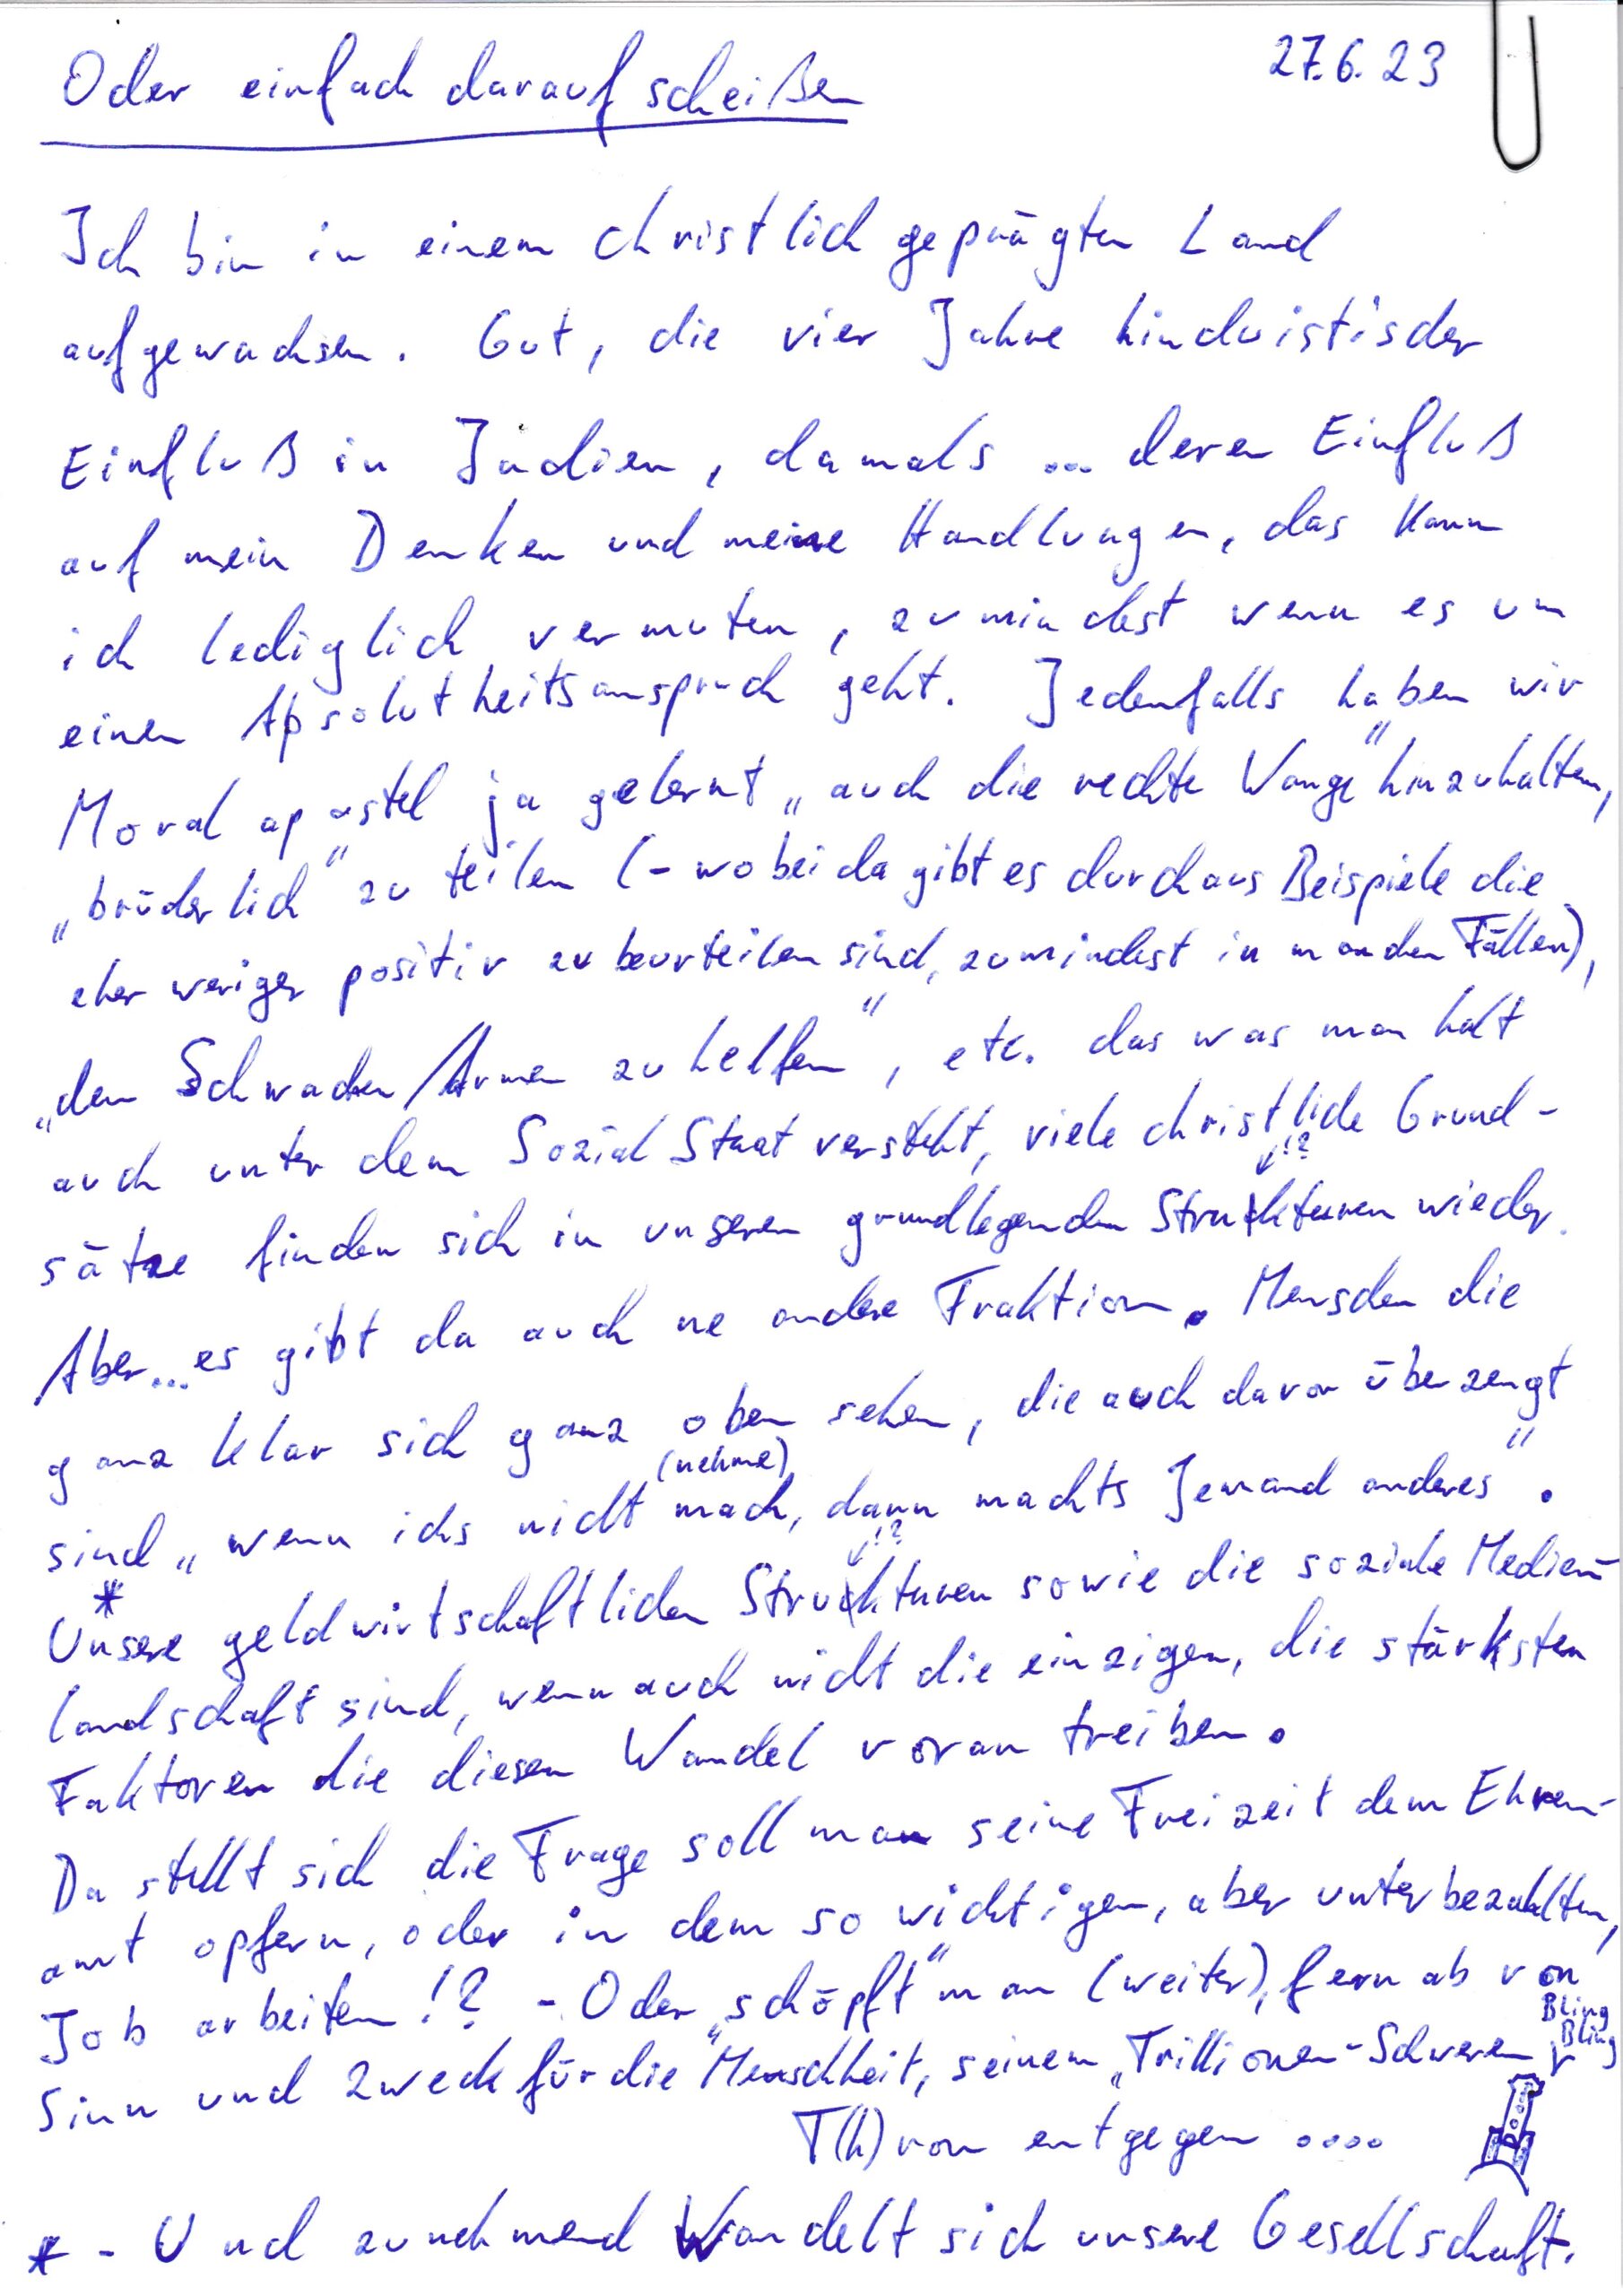 27.6.23
Oder einfach darauf scheißen
Ich bin in einem christlich geprägten Land
aufgewachsen. Gut, die vier Jahre hinduistischer
Einfluß in Indien, damals ... deren Einfluß
auf mein Denken und meine Handlungen, das kann
ich lediglich vermuten, zumindest wenn es um
einen Absolutheitsanspruch geht. Jedenfalls haben wir
Moralapostel ja gelernt „auch die rechte Wange" hinzuhalten,
„brüderlich" zu teilen (- wobei da gibt es durchaus Beispiele die
eher weniger positiv zu beurteilen sind, zumindest in manchen Fällen),
„den Schwachen/Armen zu helfen", etc. das was man halt
auch unter dem Sozial Staat versteht, viele christliche Grund-
!?
sätze finden sich in unseren grundlegenden Strukturen wieder.
Aber... es gibt da auch ne andere Fraktion. Menschen die
ganz klar sich ganz oben sehen, die auch davon überzeugt
(nehme)
sind „wenn ichs nicht mach, dann machts Jemand anderes".
* !?
Unsere geldwirtschaftlichen Strukturen sowie die soziale Medien-
landschaft sind, wenn auch nicht die einzigen, die stärksten
Faktoren die diesen Wandel voran treiben.
Da stellt sich die Frage soll man seine Freizeit dem Ehren-
amt opfern, oder in dem so wichtigen, aber unterbezahlten,
Job arbeiten!? - Oder „schöpft" man (weiter), fern ab von
Bling
Bling
Sinn und Zweck für die Menschheit, seinem „Trillionen-Schweren
T(h)ron entgegen ....
* - Und zunehmend Wandelt sich unsere Gesellschaft.